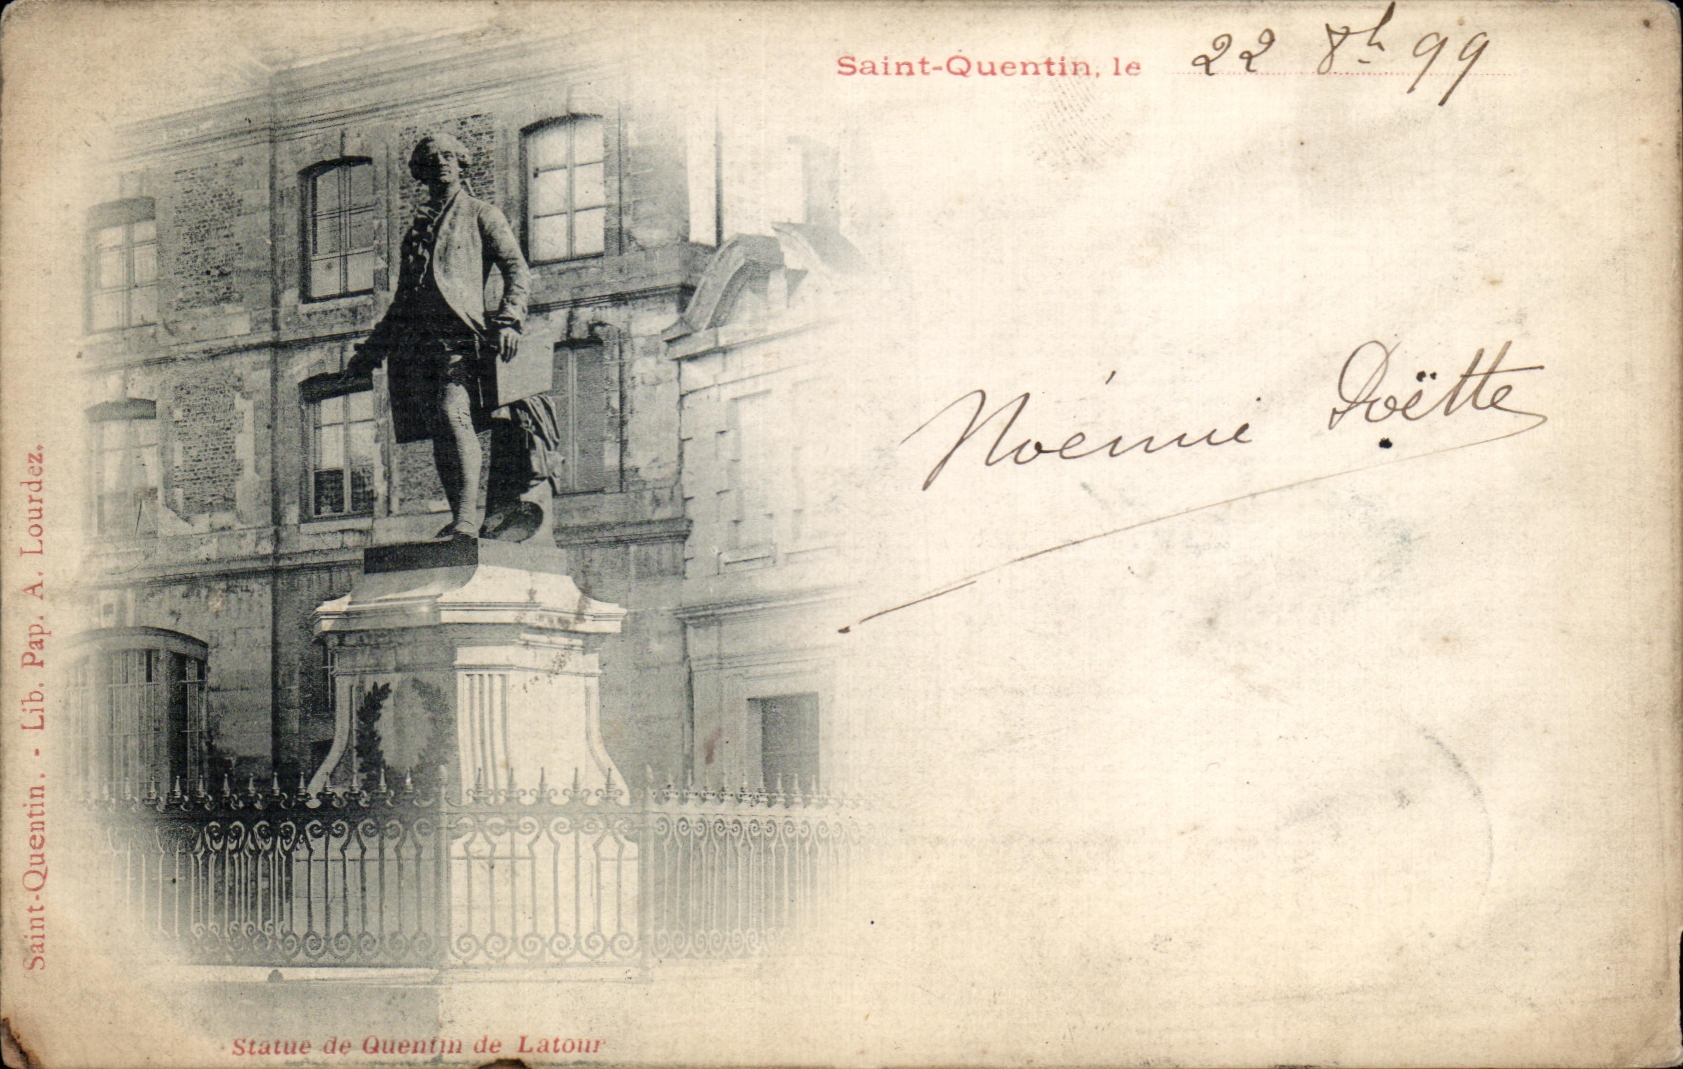 Saint-Quentin, le 22 8h 99
Noémie Doëtte
Saint-Quentin. - Lib. Pap. A. Lourdez.
Statue de Quentin de Latour